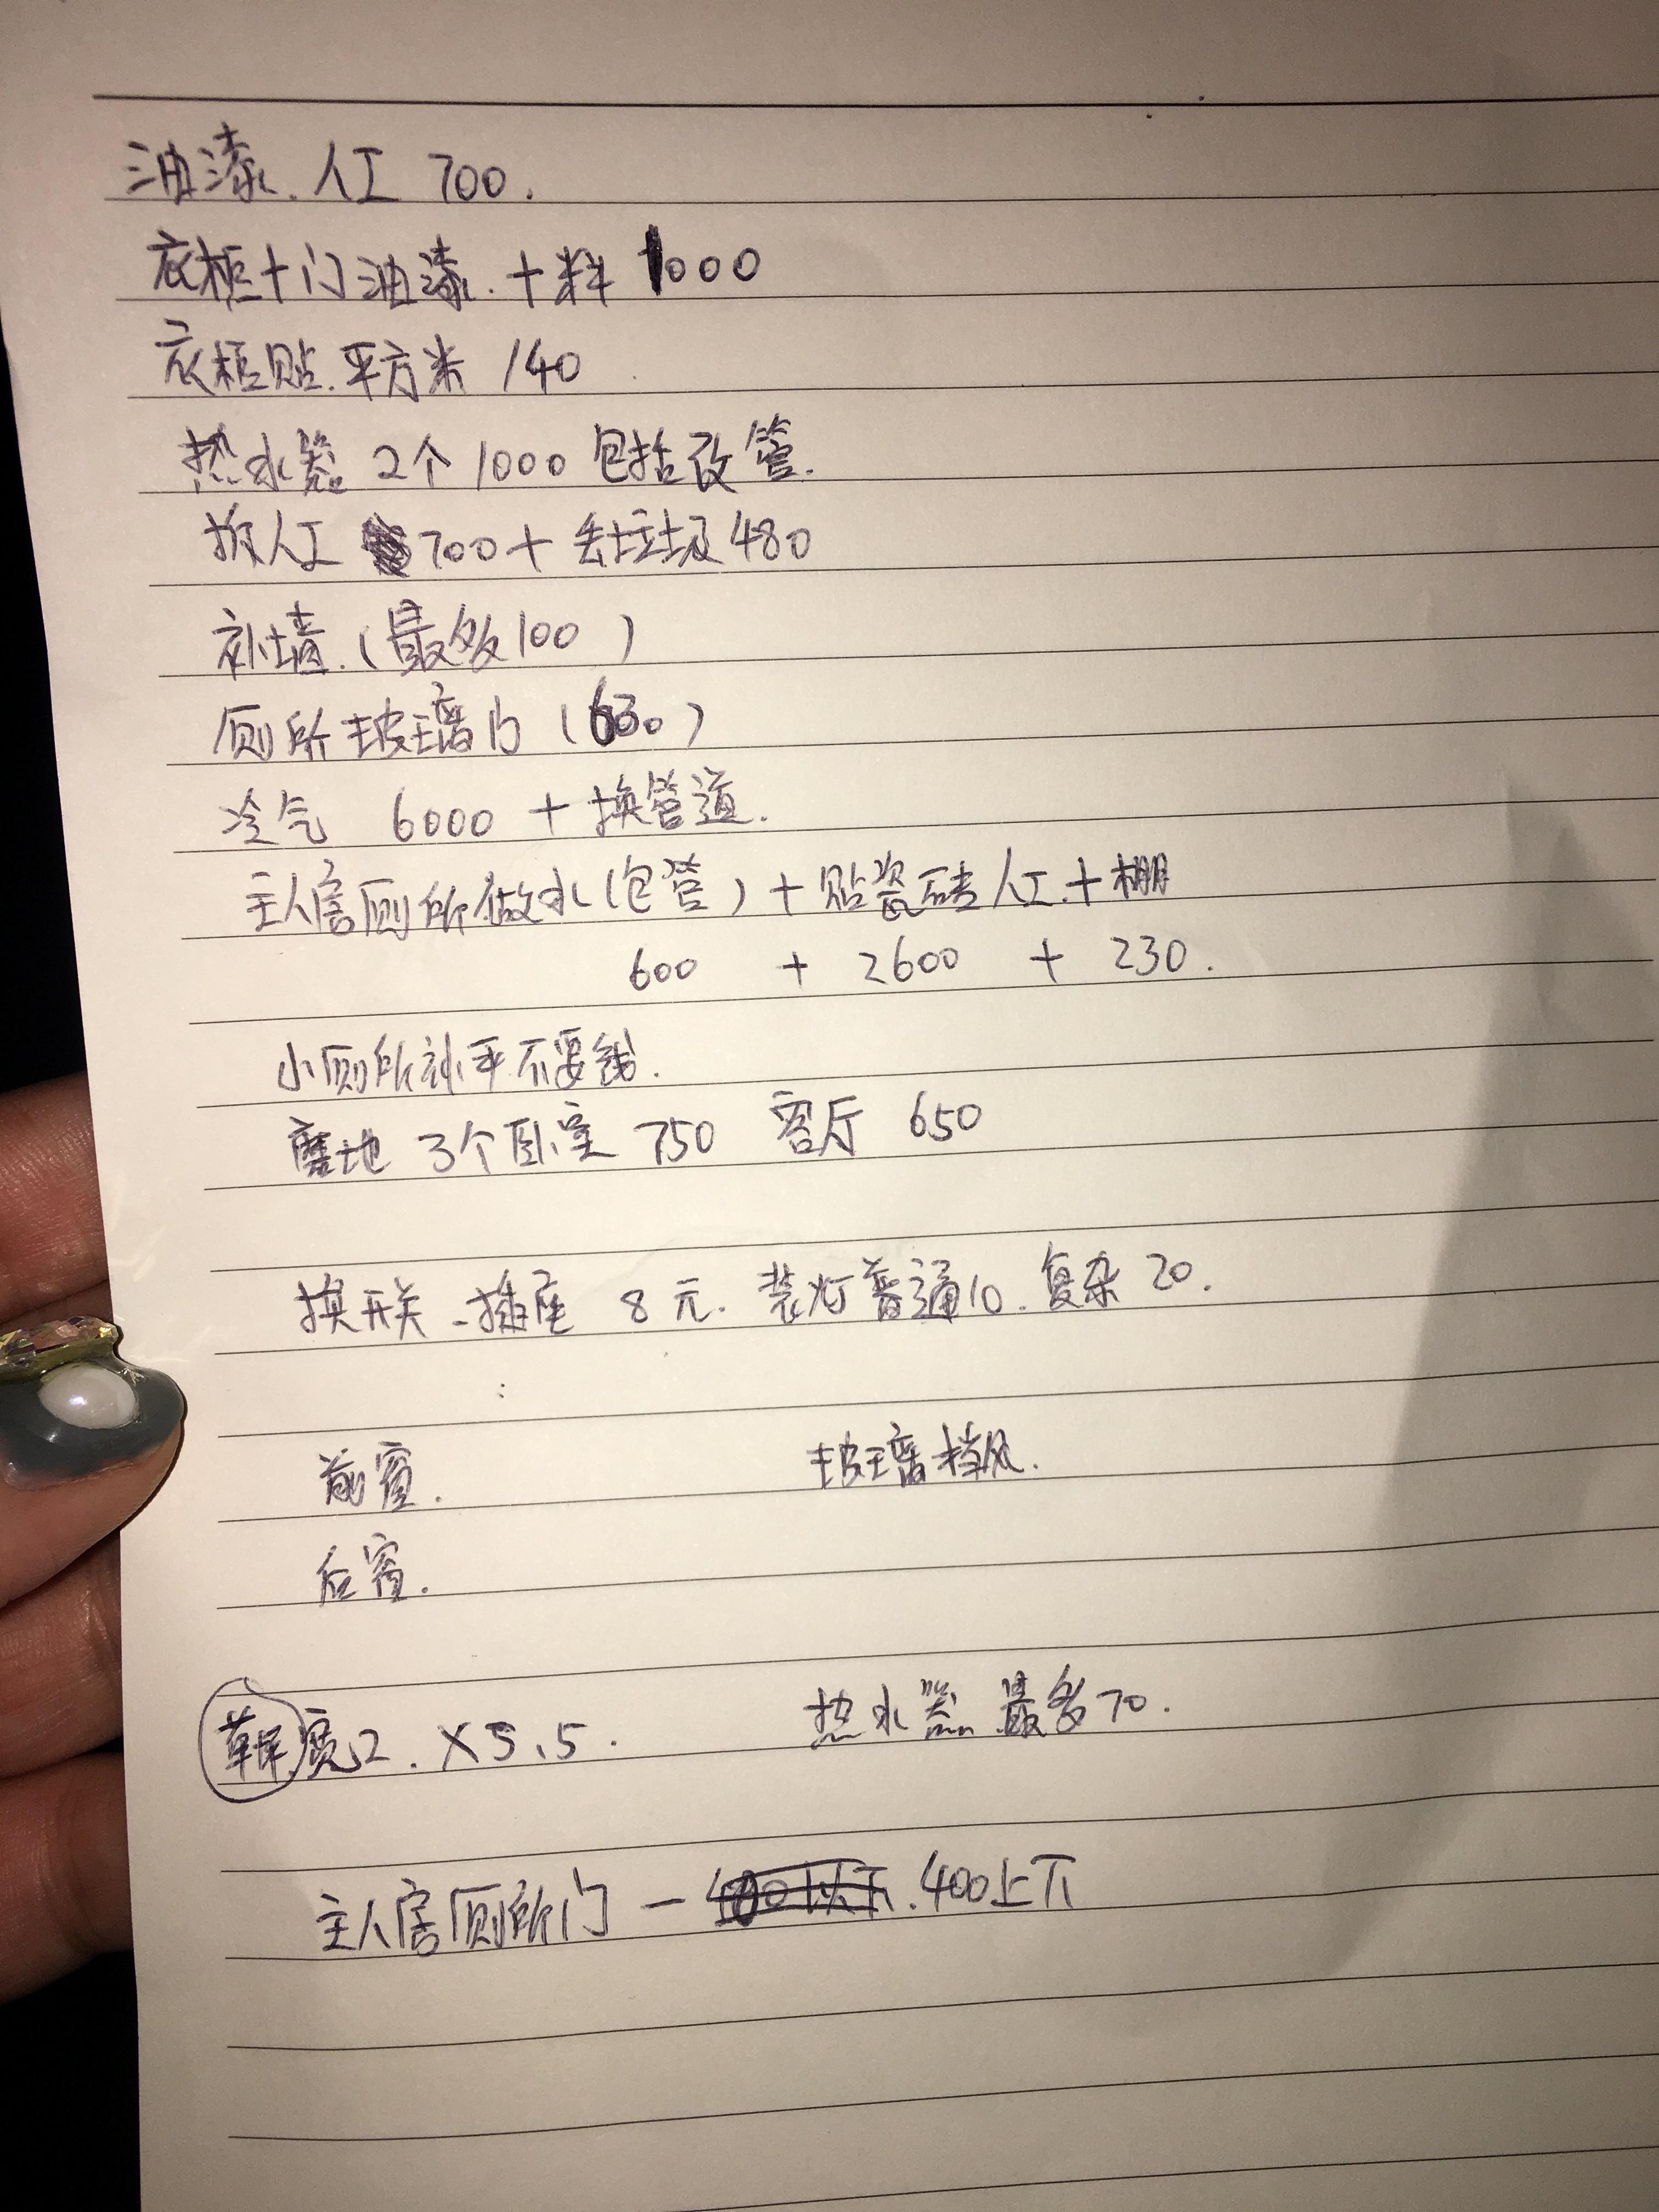 油漆.人工 700.
衣柜+门油漆.+料 1000
衣柜贴.平方米 140
热水器 2个 1000 包括改管.
拆人工 700+丢垃圾480
补墙.(最多100 )
厕所玻璃门 (630)
冷气 6000 + 换管道.
主人房厕所做水(包管)+贴瓷砖人工+棚
600 + 2600 + 230.
小厕所补平不要钱.
磨地 3个卧室 750 客厅 650
换开关-插座 8元.装灯普通10.复杂20.
前窗. 玻璃挡风.
后窗.
宽2.X5.5. 热水器最多70.
主人房厕所门 — 400上下